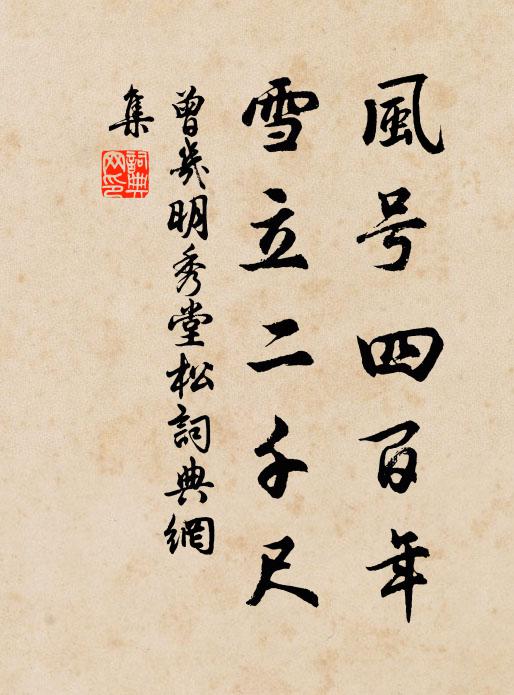 風号四百年
雪立二千尺
曾幾明秀堂松詞典網
集
詞典网印